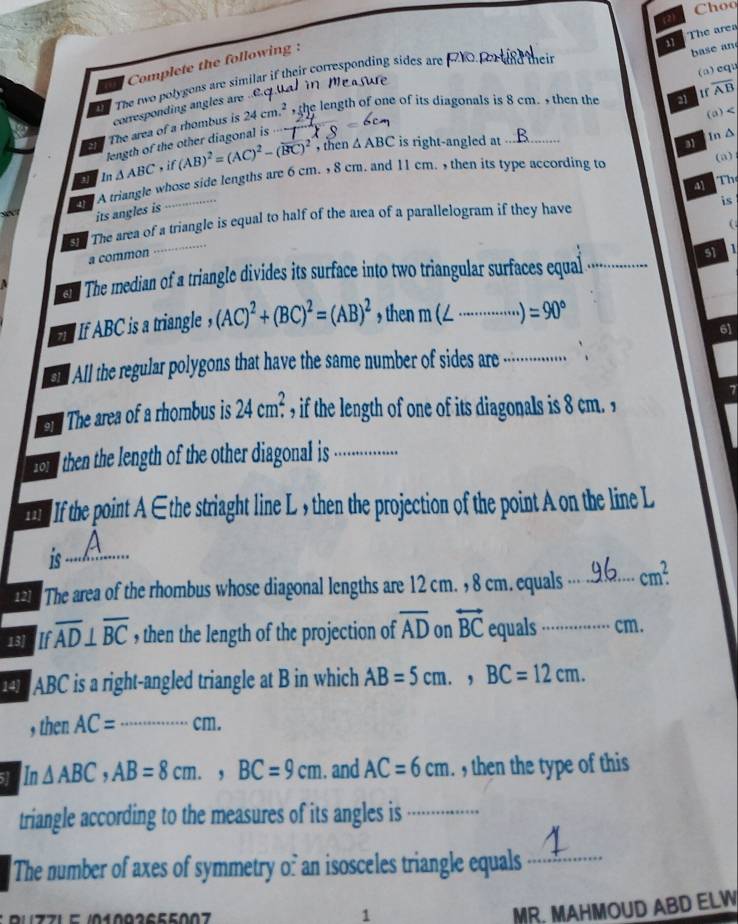 (1) Complete the following :
1] The two polygons are similar if their corresponding sides are proportional and their
corresponding angles are equal in measure
2] The area of a rhombus is 24 cm.² , the length of one of its diagonals is 8 cm. , then the
length of the other diagonal is 24 = 6cm
3] In Δ ABC , if (AB)² = (AC)² – (BC)² , then Δ ABC is right-angled at ...B...........
4] A triangle whose side lengths are 6 cm. , 8 cm. and 11 cm. , then its type according to
its angles is ..............
5] The area of a triangle is equal to half of the area of a parallelogram if they have
a common ..............
6] The median of a triangle divides its surface into two triangular surfaces equal ..............
7] If ABC is a triangle , (AC)² + (BC)² = (AB)² , then m (∠ ..............) = 90°
8] All the regular polygons that have the same number of sides are ..............
9] The area of a rhombus is 24 cm². , if the length of one of its diagonals is 8 cm. ,
10] then the length of the other diagonal is ..............
11] If the point A ∈ the striaght line L , then the projection of the point A on the line L
is ....A..........
12] The area of the rhombus whose diagonal lengths are 12 cm. , 8 cm. equals ... 96.... cm².
13] If AD ⊥ BC , then the length of the projection of AD on BC equals .............. cm.
14] ABC is a right-angled triangle at B in which AB = 5 cm. , BC = 12 cm.
, then AC = .............. cm.
5] In Δ ABC , AB = 8 cm. , BC = 9 cm. and AC = 6 cm. , then the type of this
triangle according to the measures of its angles is ..............
The number of axes of symmetry of an isosceles triangle equals ....1..........
PUZZLE /01093655007
1
MR. MAHMOUD ABD ELW
(2) Choo
1] The area
base and
(a) equ
2] If AB
(a) <
3] In Δ
(a)
4] Th
is
(
5] I
6]
7